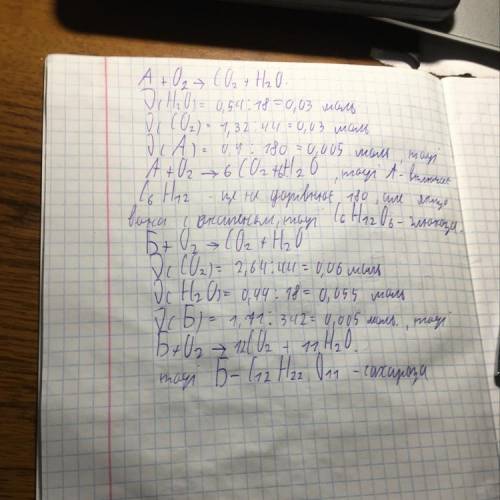 А + O₂ → CO₂ + H₂O.
ν(H₂O) = 0,54 : 18 = 0,03 моль
ν(CO₂) = 1,32 : 44 = 0,03 моль
ν(A) = 0,9 : 180 = 0,005 моль, тоді
А + O₂ → 6CO₂ + 6H₂O, тоді А - включає
C₆H₁₂ - це не дорівнює 180, але якщо
вона с оксигеном, тоді C₆H₁₂O₆ - глюкоза.
Б + O₂ → CO₂ + H₂O
ν(CO₂) = 2,64 : 44 = 0,06 моль
ν(H₂O) = 0,99 : 18 = 0,055 моль
ν(Б) = 1,71 : 342 = 0,005 моль, тоді
Б + O₂ → 12CO₂ - 11H₂O.
тоді Б - C₁₂H₂₂O₁₁ - сахароза